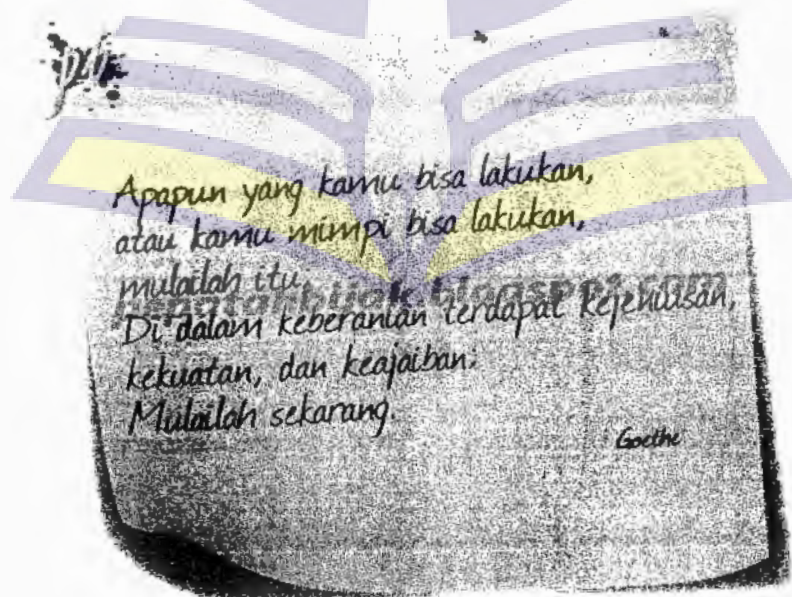 Apapun yang kamu bisa lakukan,
atau kamu mimpi bisa lakukan,
mulailah itu.
Di dalam keberanian terdapat kejeniusan,
kekuatan, dan keajaiban.
Mulailah sekarang.
Goethe